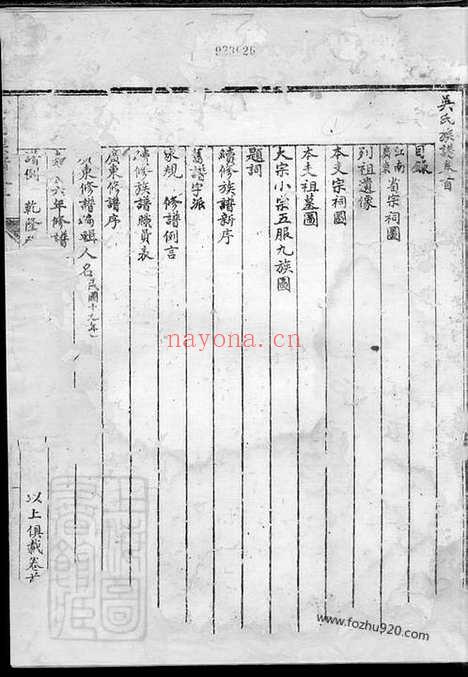 923926
吳氏族譜卷首
目錄
江南
廣東
省宗祠圖
列祖遺像
本支宗祠圖
本支祖墓圖
大宗小宗五服九族圖
題詞
續修族譜新序
舊譜字派
家規 修譜例言
續修族譜職員表
廣東修譜序
東修譜編輯人名 民國十九年
六年修譜
例 乾隆
以上俱載卷首
nayona.cn
www.fozhu920.com